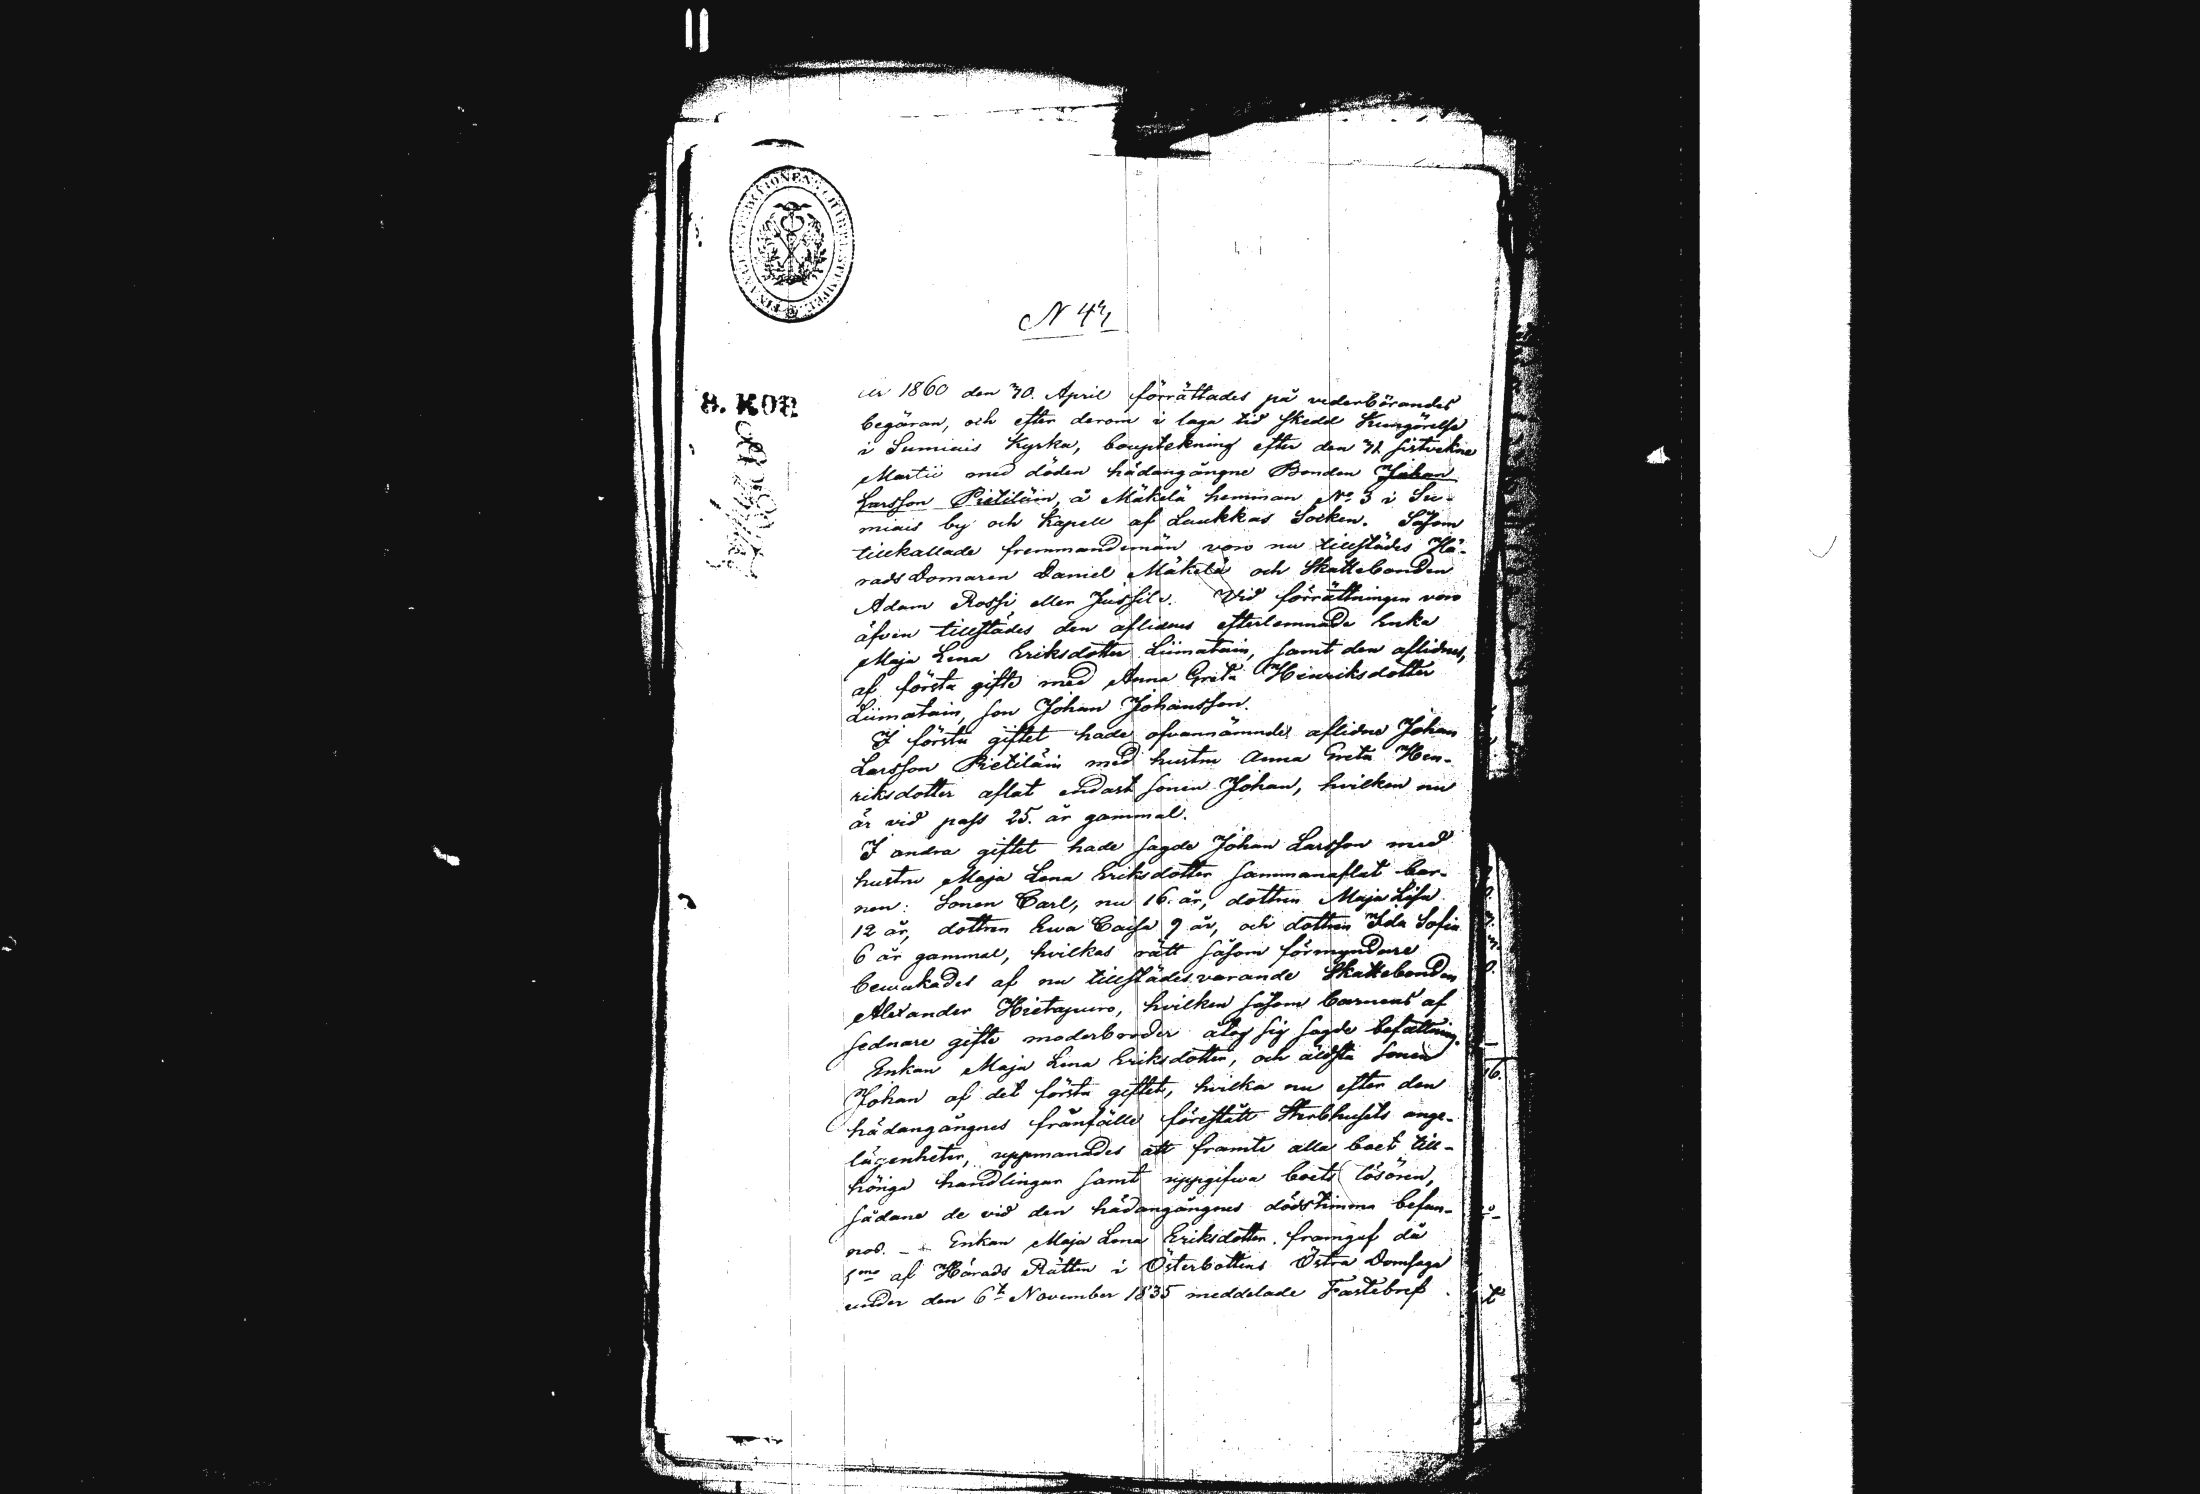 N 43
8. KOP.
År 1860 den 30. April förrättades på vederbörandes
begäran, och efter derom i laga tid skedd Kungörelse
i Sumiais Kyrka, bouptekning efter den 31 sistvekne
Martii med döden hädangångne Bonden Johan
Larsson Pietiläin, å Mäkelä hemman No 3 i Su-
miais by och Kapell af Laukkas Socken. Såsom
tillkallade fremmandemän voro nu tillstädes Hä-
radsDomaren Daniel Mäkelä och Skattebonden
Adam Rossi eller Jussila. Vid förrättningen voro
äfven tillstädes den aflidnes efterlemnade Enka
Maja Lena Eriksdotter Liimatain, samt den aflidnes,
af första gifte med Anna Greta Henriksdotter
Liimatain, son Johan Johansson.
I första giftet hade ofvannämnde aflidne Johan
Larsson Pietiläin med hustru Anna Greta Hen-
riksdotter aflat endast sonen Johan, hvilken nu
är vid pass 25. år gammal.
I andra giftet hade sagde Johan Larsson med
hustru Maja Lena Eriksdotter sammanaflat bar-
nen: Sonen Carl, nu 16. år, dottren Maja Lisa
12 år, dottren Ewa Caisa 9 år, och dottren Ida Sofia
6 år gammal, hvilkas rätt såsom förmyndare
bewakades af nu tillstädesvarande Skattebonden
Alexander Hietapuro, hvilken såsom barnens af
sednare gifte moderbroder åtog sig sagde befattning.
Enkan Maja Lena Eriksdotter, och äldsta sonen
Johan af det första giftet, hvilka nu efter den
hädangångnes frånfälle förestått Sterbhusets ange-
lägenheter, uppmanades att framte alla boet till-
höriga handlingar samt uppgifwa boets lösören,
sådane de vid den hädangångnes dödstimma befun-
nos. - Enkan Maja Lena Eriksdotter framgaf då
1mo af Härads Rätten i Österbottens Östra Domsaga
under den 6t November 1835 meddelade Fastebref